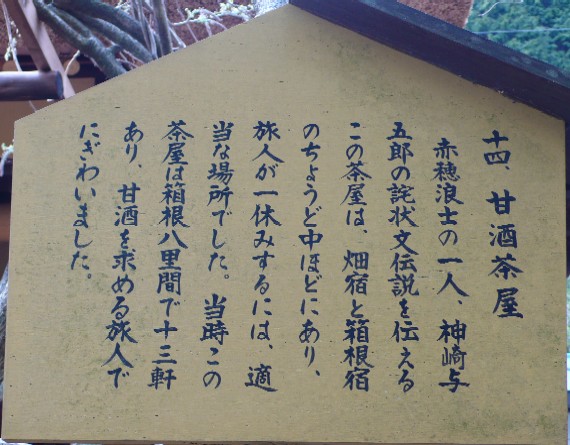 十四、甘酒茶屋
赤穂浪士の一人、神崎与
五郎の詫状文伝説を伝える
この茶屋は、畑宿と箱根宿
のちょうど中ほどにあり、
旅人が一休みするには、適
当な場所でした。当時この
茶屋は箱根八里間で十三軒
あり、甘酒を求める旅人で
にぎわいました。